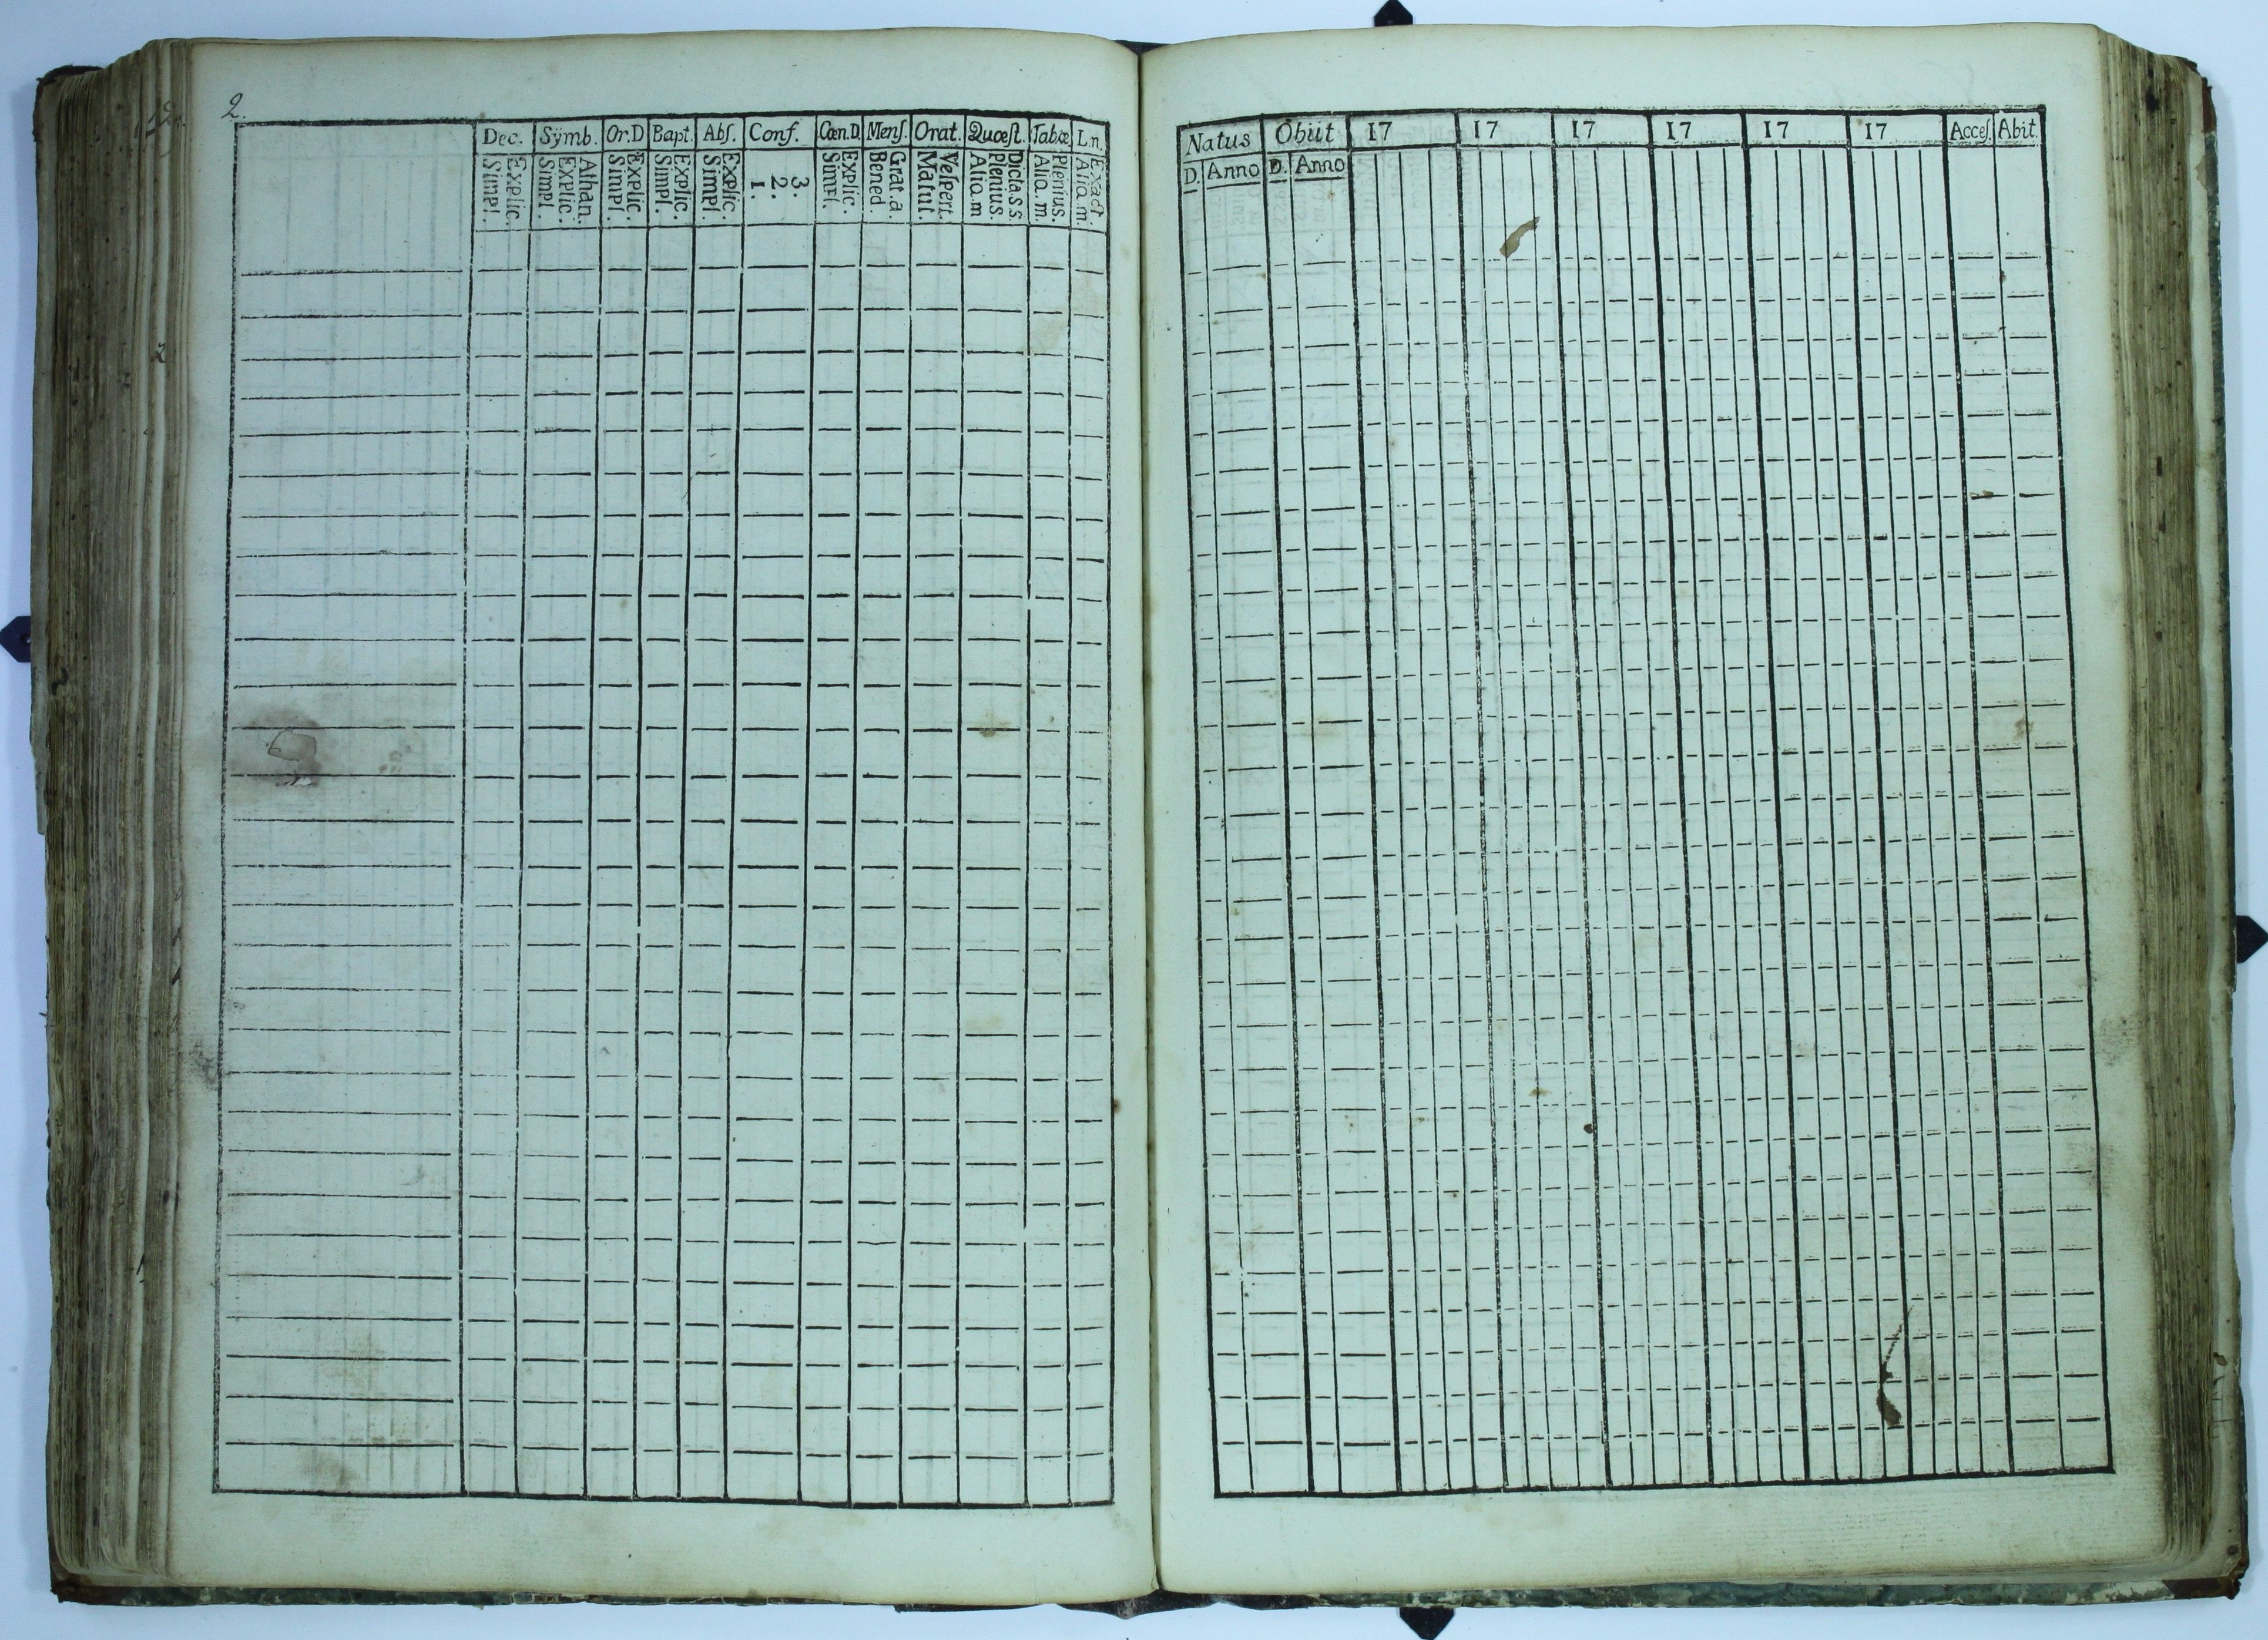 2.
Dec. Sÿmb. Or.D Bapt. Abſ. Conf. Cœn.D. Menſ. Orat. Quœſt. Tabœ L.n.
Explic. Simpl.
Athan. Explic. Simpl.
Explic. Simpl.
Explic. Simpl.
Explic. Simpl.
3. 2. 1.
Explic. Simpl.
Grat.a. Bened.
Veſpert. Matut.
Dicta.s.s. Plenius. Alio.m
Plenius. Alio.m.
Exact. Alia.m.
Natus Obiit 17 17 17 17 17 17 Acceſ. Abit.
D. Anno D. Anno